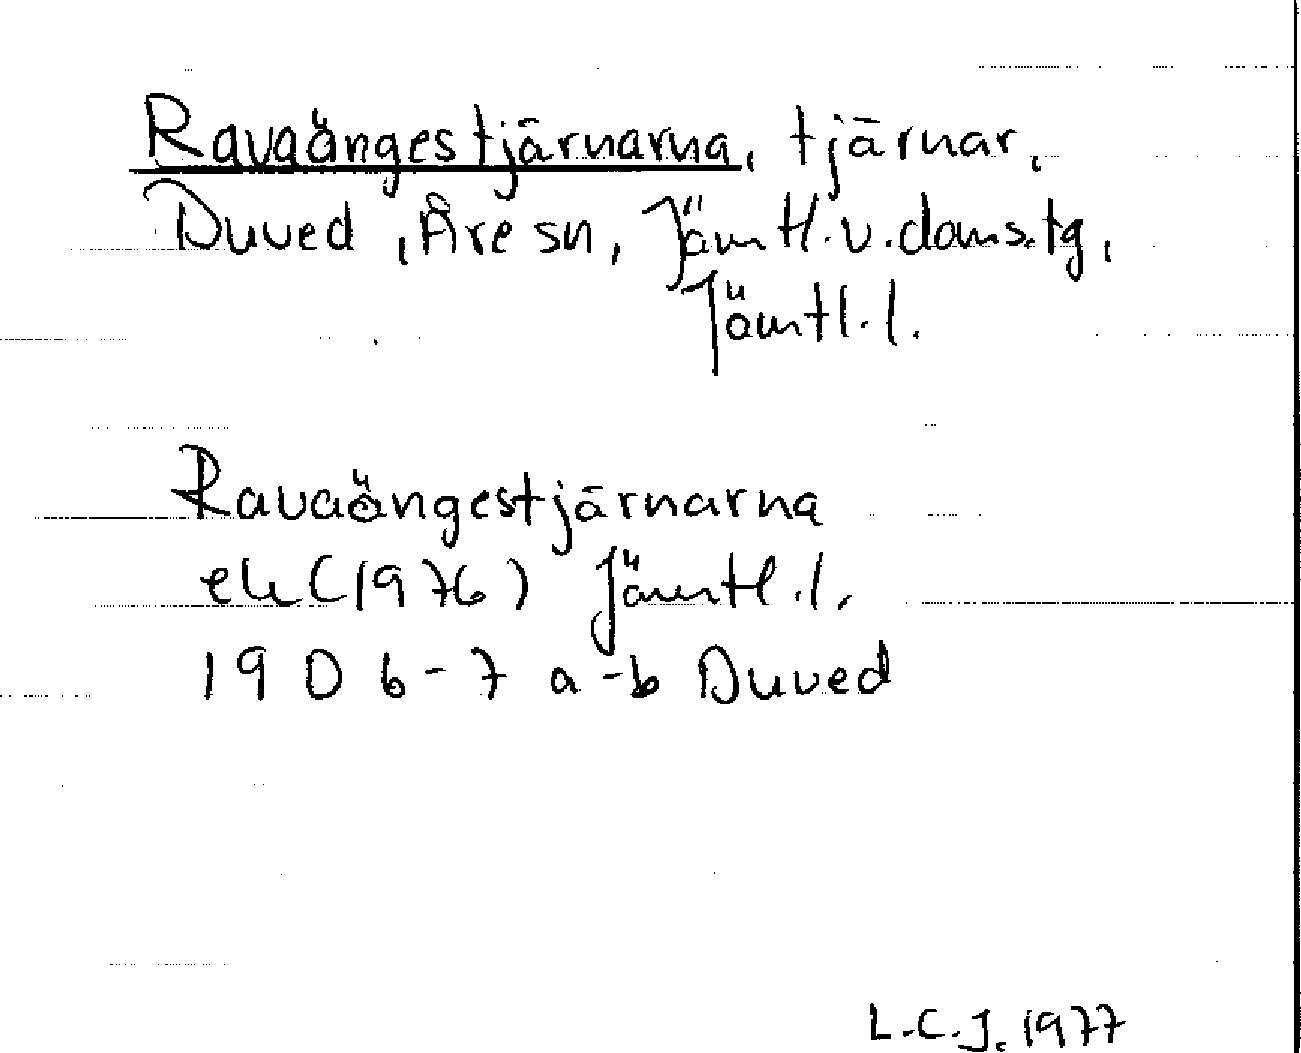 Ravaängestjärnarna, tjärnar,
Duved, Åre sn, Jämtl.v.doms.tg,
Jämtl.l.
Ravaängestjärnarna
ek (1976) Jämtl.l,
19 D 6-7 a-b Duved
L.C.J. 1977